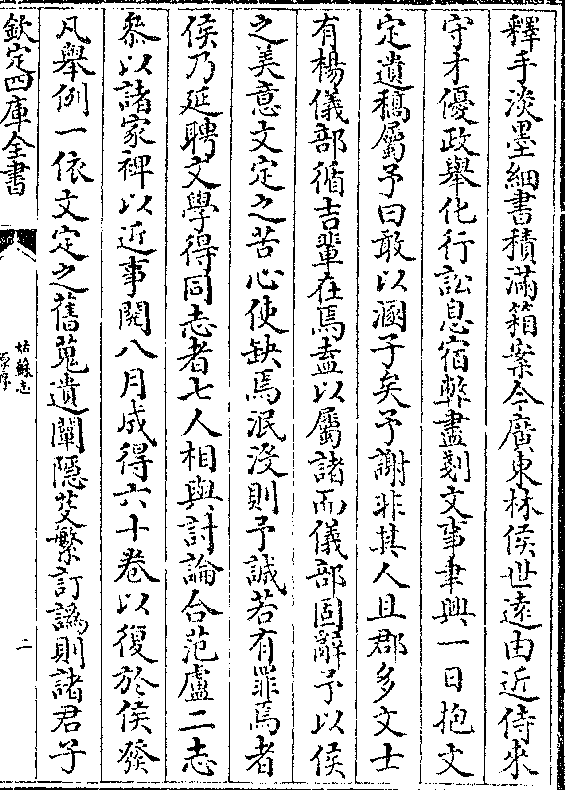 釋手淡墨細書積滿箱案今廣東林侯世遠由近侍來
守才優政舉化行訟息宿弊盡剗文事聿興一日抱文
定遺稿屬予曰敢以溷子矣予謝非其人且郡多文士
有楊儀部循吉輩在焉盍以屬諸而儀部固辭予以侯
之美意文定之苦心使缺焉泯没則予誠若有罪焉者
侯乃延聘文學得同志者七人相與討論合范盧二志
叅以諸家裨以近事閱八月成得六十卷以復於侯發
凡舉例一依文定之舊蒐遺闡隱芟繁訂譌則諸君子
欽定四庫全書
姑蘇志
原序
二